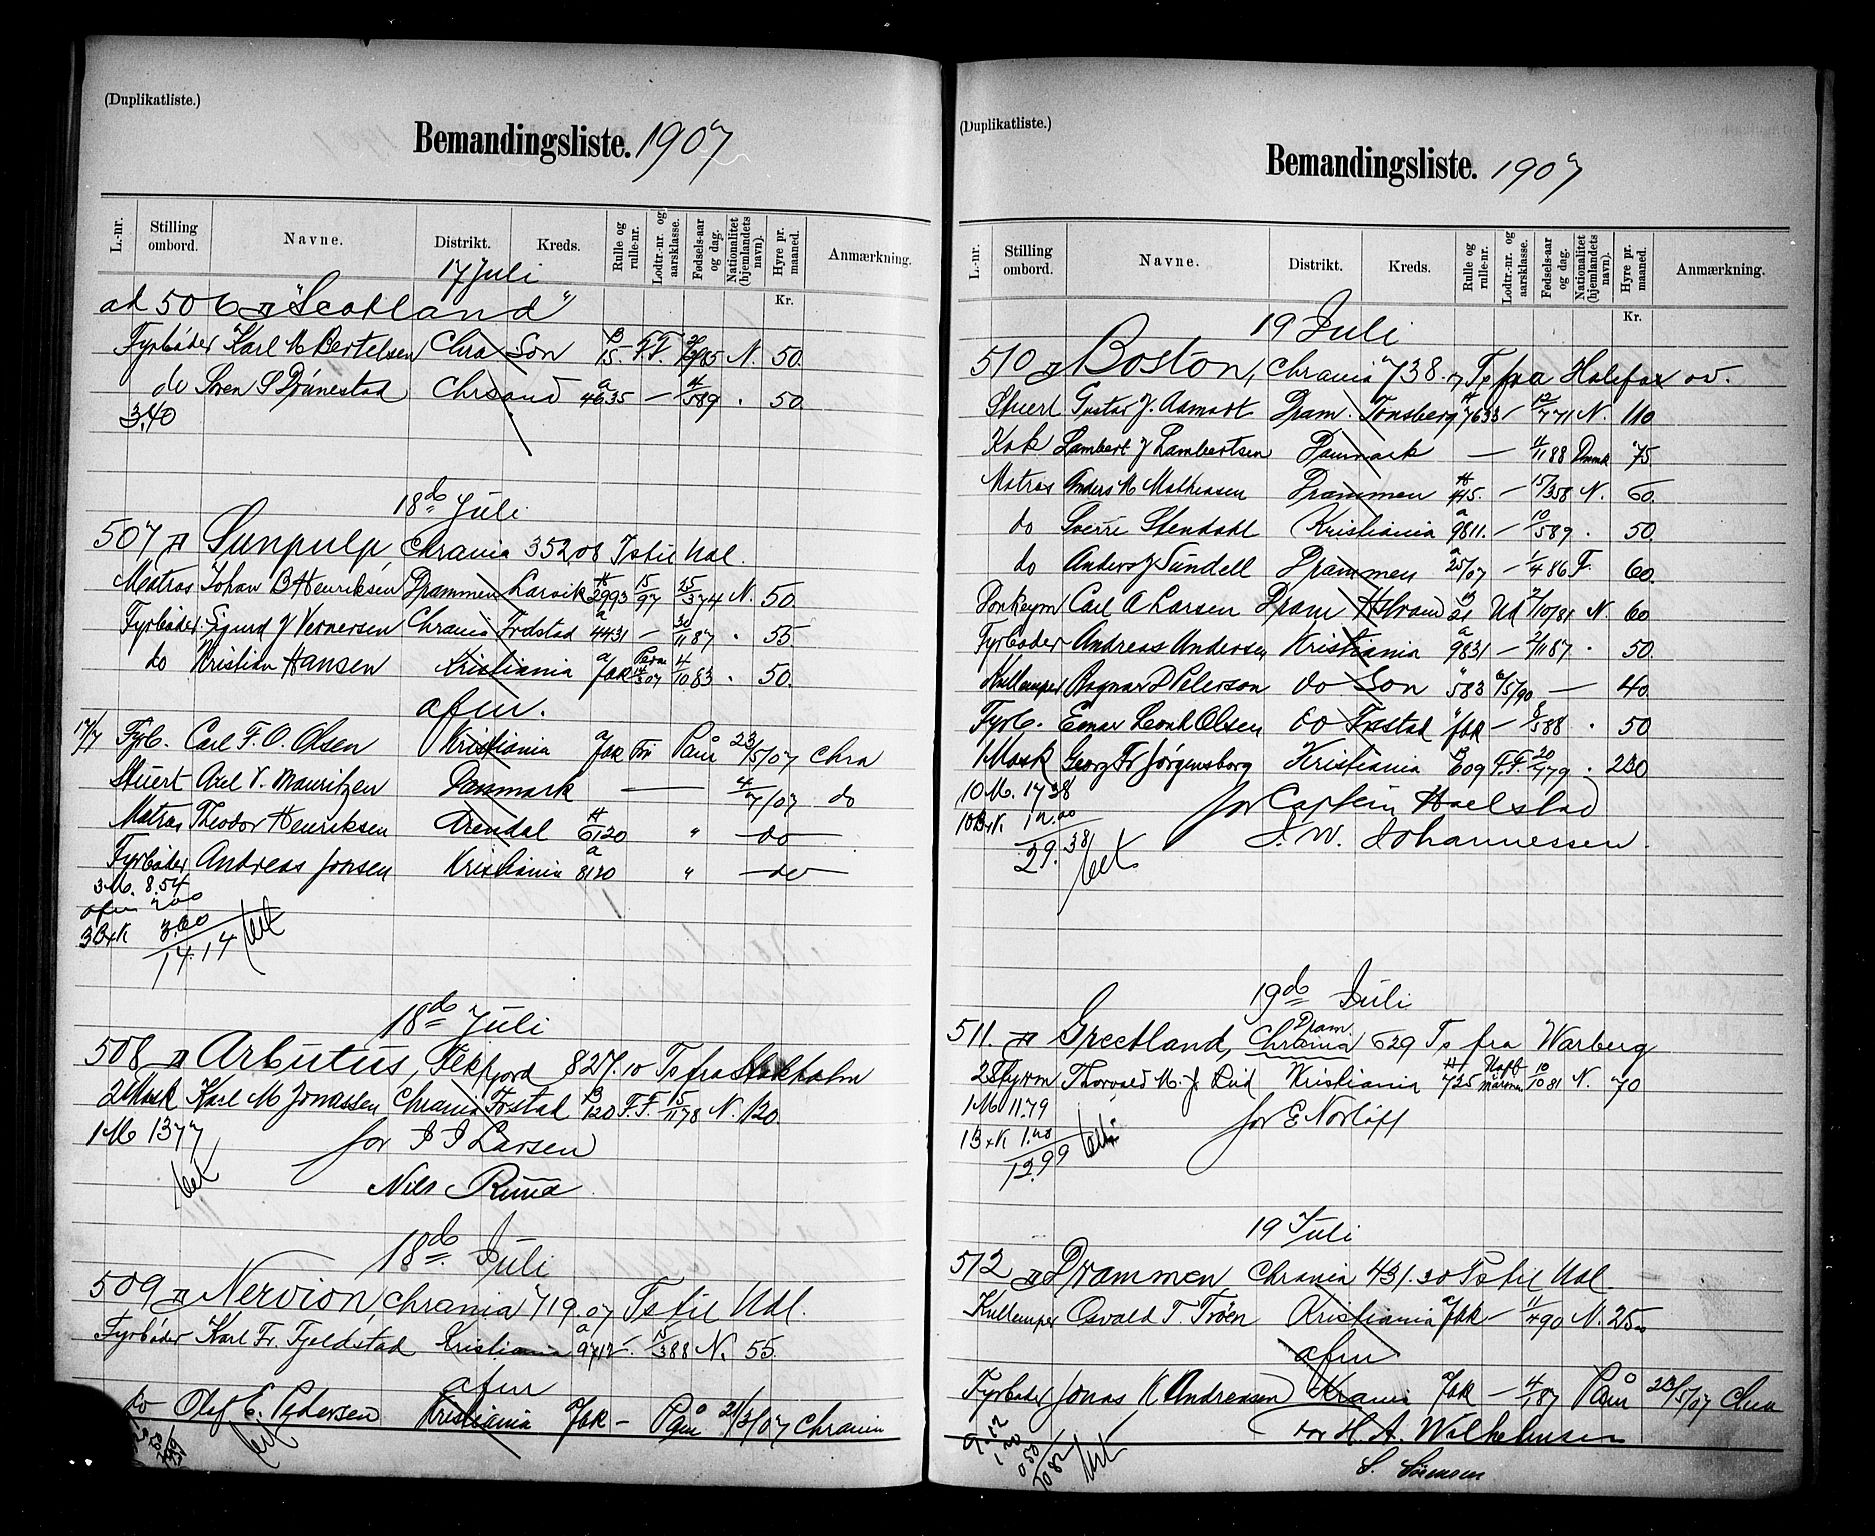 (Duplikatliste.)
Bemandingsliste. 1907
L.-nr. Stilling ombord. Navne. Distrikt. Kreds. Rulle og rulle-nr. Lodtr.-nr. og aarsklasse. Fødsels-aar og dag. Nationalitet (hjemlandets navn). Hyre pr. maaned. Anmærkning.
Kr.
17 Juli
ad 506 "Scotland"
Fyrbøder Karl M Bertelsen Chra Son B 15. F.F. N. 50.
do Soren S Drånestad Chrsand a 4635 — 4/5 89 . 50.
3.40
18de Juli
507 Sunpulp, Chrania 352,08 Ts til Udl.
Matros Johan B Henriksen Drammen Larvik H 2993 15/97 25/3 74 N. 50.
Fyrbøder Sigurd J Vernersen Chrania Frdstad a 4431 — 30/11 87 . 55
do Kristian Hansen Kristiania a fbk 4/10 83 . 50.
afm.
17/7 Fyrb. Carl F. O. Olsen Kristiania a fbk Påm 23/5/07 Chra
Stuert Axel V. Mauritzen Danmark — 4/7/07 do
Matros Theodor Henriksen Arendal H 6120 " do
Fyrbøder Andreas Jonsen Kristiania a 8120 " do
3M. 8.54
afm 2.00
3B+K 3.60
14.14
18de Juli
508 Arbutus, Flekfjord 827.10 Ts fra Stokholm
2 Mask Karl M Jonassen Chrania Frstad B 120 F.F. 15/11 78 N. 120.
1M 13 77
for I I Larsen
Nils Ruud
18de Juli
509 Nervion, Chrania 719.07 Ts til Udl.
Fyrbøder Karl Fr. Fjeldstad Kristiania a 9712 - 15/3 88 N. 55.
afm
do Olaf E. Pedersen Kristiania fbk — Påm 21/3/07 Chrania
(Duplikatliste.)
Bemandingsliste. 1907
L.-nr. Stilling ombord. Navne. Distrikt. Kreds. Rulle og rulle-nr. Lodtr.-nr. og aarsklasse. Fødsels-aar og dag. Nationalitet (hjemlandets navn). Hyre pr. maaned. Anmærkning.
Kr.
19 Juli
510 Boston, Chrania 738. Ts fra Halifax ov.
Stuert Gustav J. Aamodt Dram. Tønsberg H 7633 — 12/7 71 N. 110
Kok Lambert J Lambertsen Danmark — 4/11 88 Danmk 75
Matros Anders M Mathiasen Drammen H 415. — 15/3 58 N. 60.
do Sverre Stendahl Kristiania a 9811. — 10/5 89 . 50.
do Anders J Sundell Drammen a 25/07 — 1/4 86 F. 60.
Donkeym Carl A Larsen Dram Holmsand B 21 Ud 2/10/81 N. 60
Fyrbøder Andreas Andersen Kristiania a 9831 — 2/11 87 . 50.
Kullemper Ragnar D Peterson do Son " 583 2/5/90 — 40
Fyrb. Einar Leonh Olsen do Frstad " fbk — 8/5 88 . 50
1 Mask Georg Fr Jørgensborg Kristiania B 609 F.F. 20/4 79 . 230
10M. 17 38
10B+K 12.00
29.38
for Captein Haelstad
J. W. Johannessen.
19de Juli
511. Greetland, Chrania Dram. 629 Ts fra Warberg
2 Styrm Thorvald M. J. Lid Kristiania H 725 10/10 81 N. 70
1M 11.79
1B+K 1.20
12.99
for E Norløff
19 Juli
512 Drammen Chrania 431.30 Ts til Udl.
Kullemper Osvald T. Troen Kristiania fbk — 11/4 90 N. 25.00
afm
Fyrbøder Jonas K Andreasen Krania fbk — 4/1 87 Påm 23/5/07 Chra
for H. A. Wilhelmsen
S. Sørensen